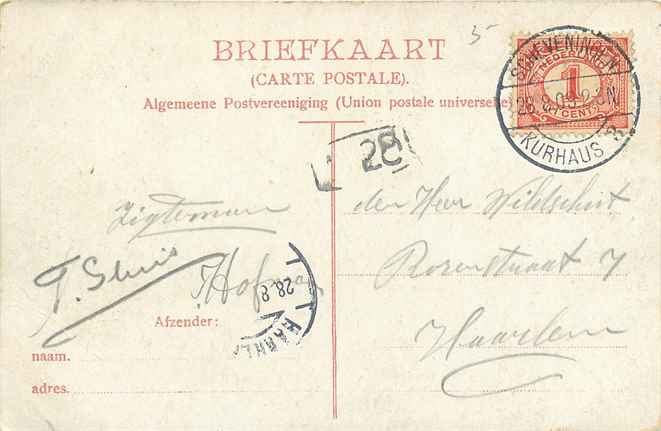 5-
BRIEFKAART
(CARTE POSTALE).
Algemeene Postvereeniging (Union postale universelle)
NEDERLAND
1
CENT
SCHEVENINGEN
28.8.09 2-3N
KURHAUS 3
28
den Heer Wildschut
Rozenstraat 7
Haarlem
T. Sluis
28.8
HAARL
Afzender:
naam.
adres.